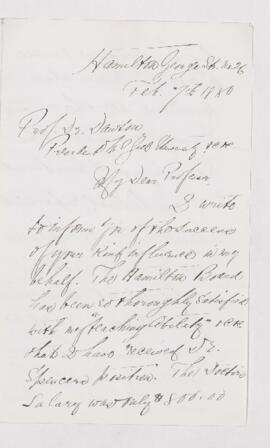 Hamilton George St. No 26
Feb. 7th 1880
Prof. Dr. Dawson
President McGill University &c &c
My Dear Professor
I write
to inform you of the success
of your kind influence in my
behalf. The Hamilton Board
has been so thoroughly satisfied
with my "teaching ability" &c &c
that I have received Dr.
Spencers position. The Doctors
Salary was only $800.00